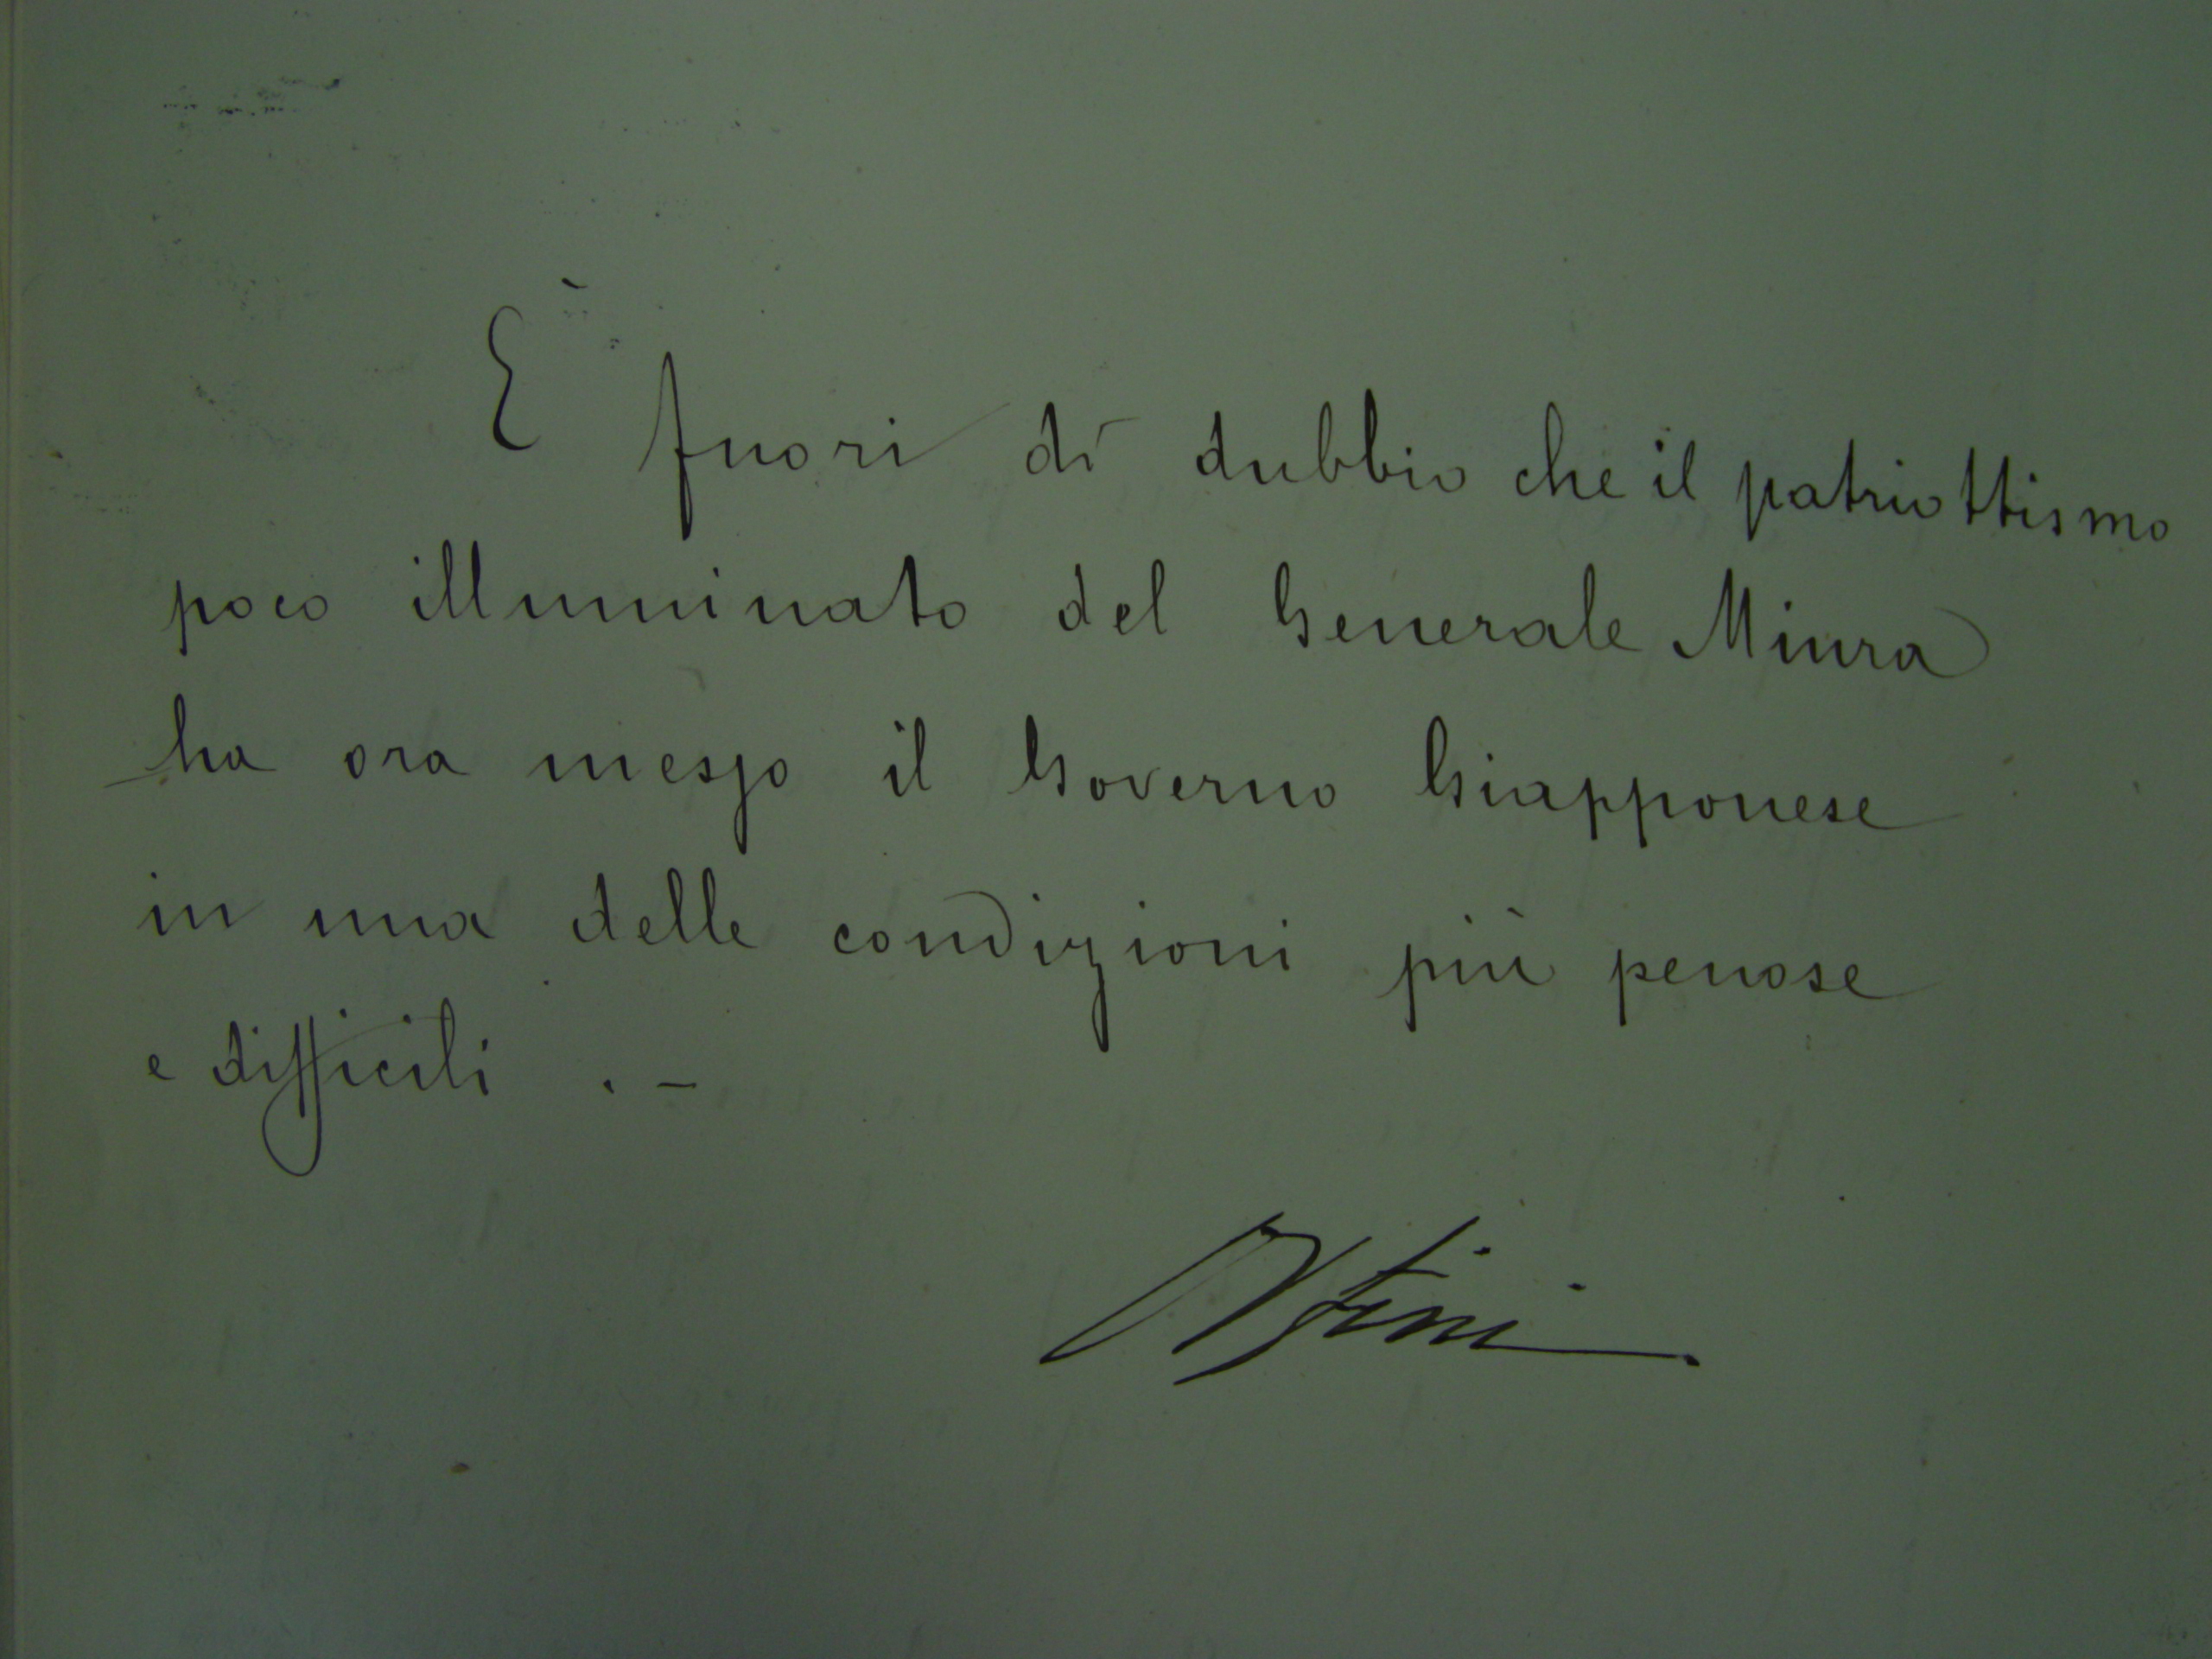 È fuori di dubbio che il patriottismo
poco illuminato del Generale Miura
ha ora messo il Governo Giapponese
in una delle condizioni più penose
e difficili . –